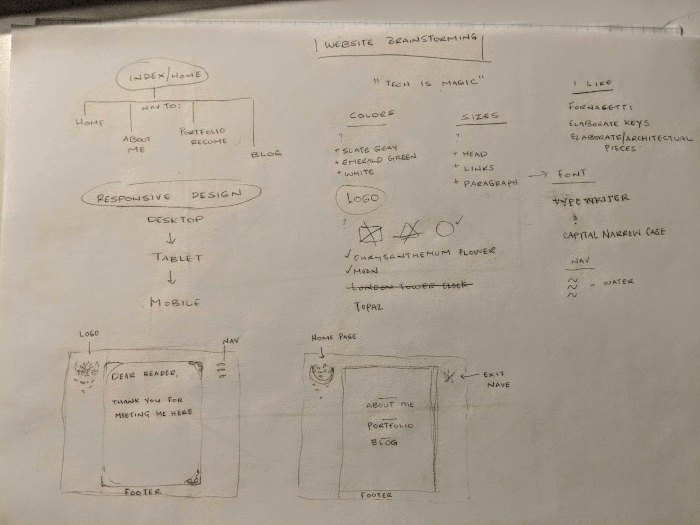 WEBSITE BRAINSTORMING
"TECH IS MAGIC"
INDEX/HOME
NAV TO:
HOME
ABOUT
ME
PORTFOLIO
RESUME
BLOG
RESPONSIVE DESIGN
DESKTOP
TABLET
MOBILE
COLORS
?
+ SLATE GRAY
+ EMERALD GREEN
+ WHITE
SIZES
?
+ HEAD
+ LINKS
+ PARAGRAPH
LOGO
?
✓ CHRYSANTHEMUM FLOWER
✓ MOON
LONDON TOWER CLOCK
TOPAZ
I LIKE
FORNASETTI
ELABORATE KEYS
ELABORATE/ARCHITECTURAL
PIECES
→ FONT
TYPEWRITER
&
CAPITAL NARROW CASE
NAV
- WATER
LOGO
NAV
DEAR READER,
THANK YOU FOR
MEETING ME HERE
FOOTER
HOME PAGE
← EXIT
NAVE
ABOUT ME
PORTFOLIO
BLOG
FOOTER